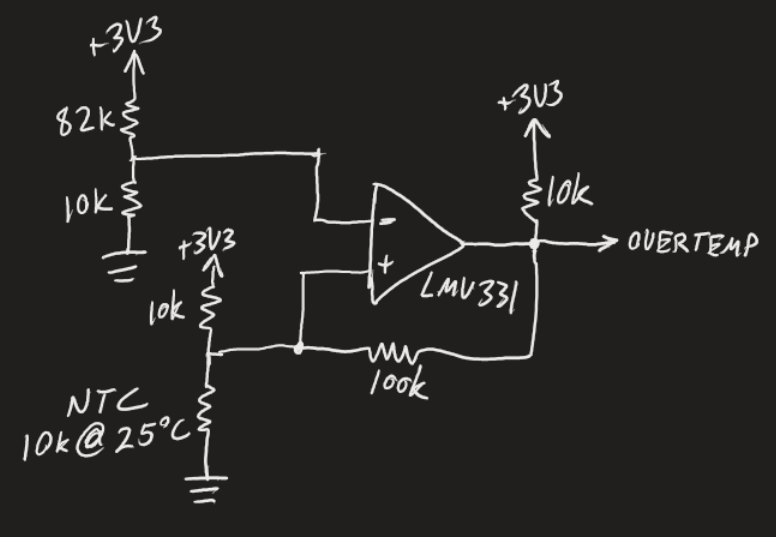 +3V3
82k
10k
+3V3
10k
NTC
10k@25°C
-
+
LMV331
100k
+3V3
10k
OVERTEMP